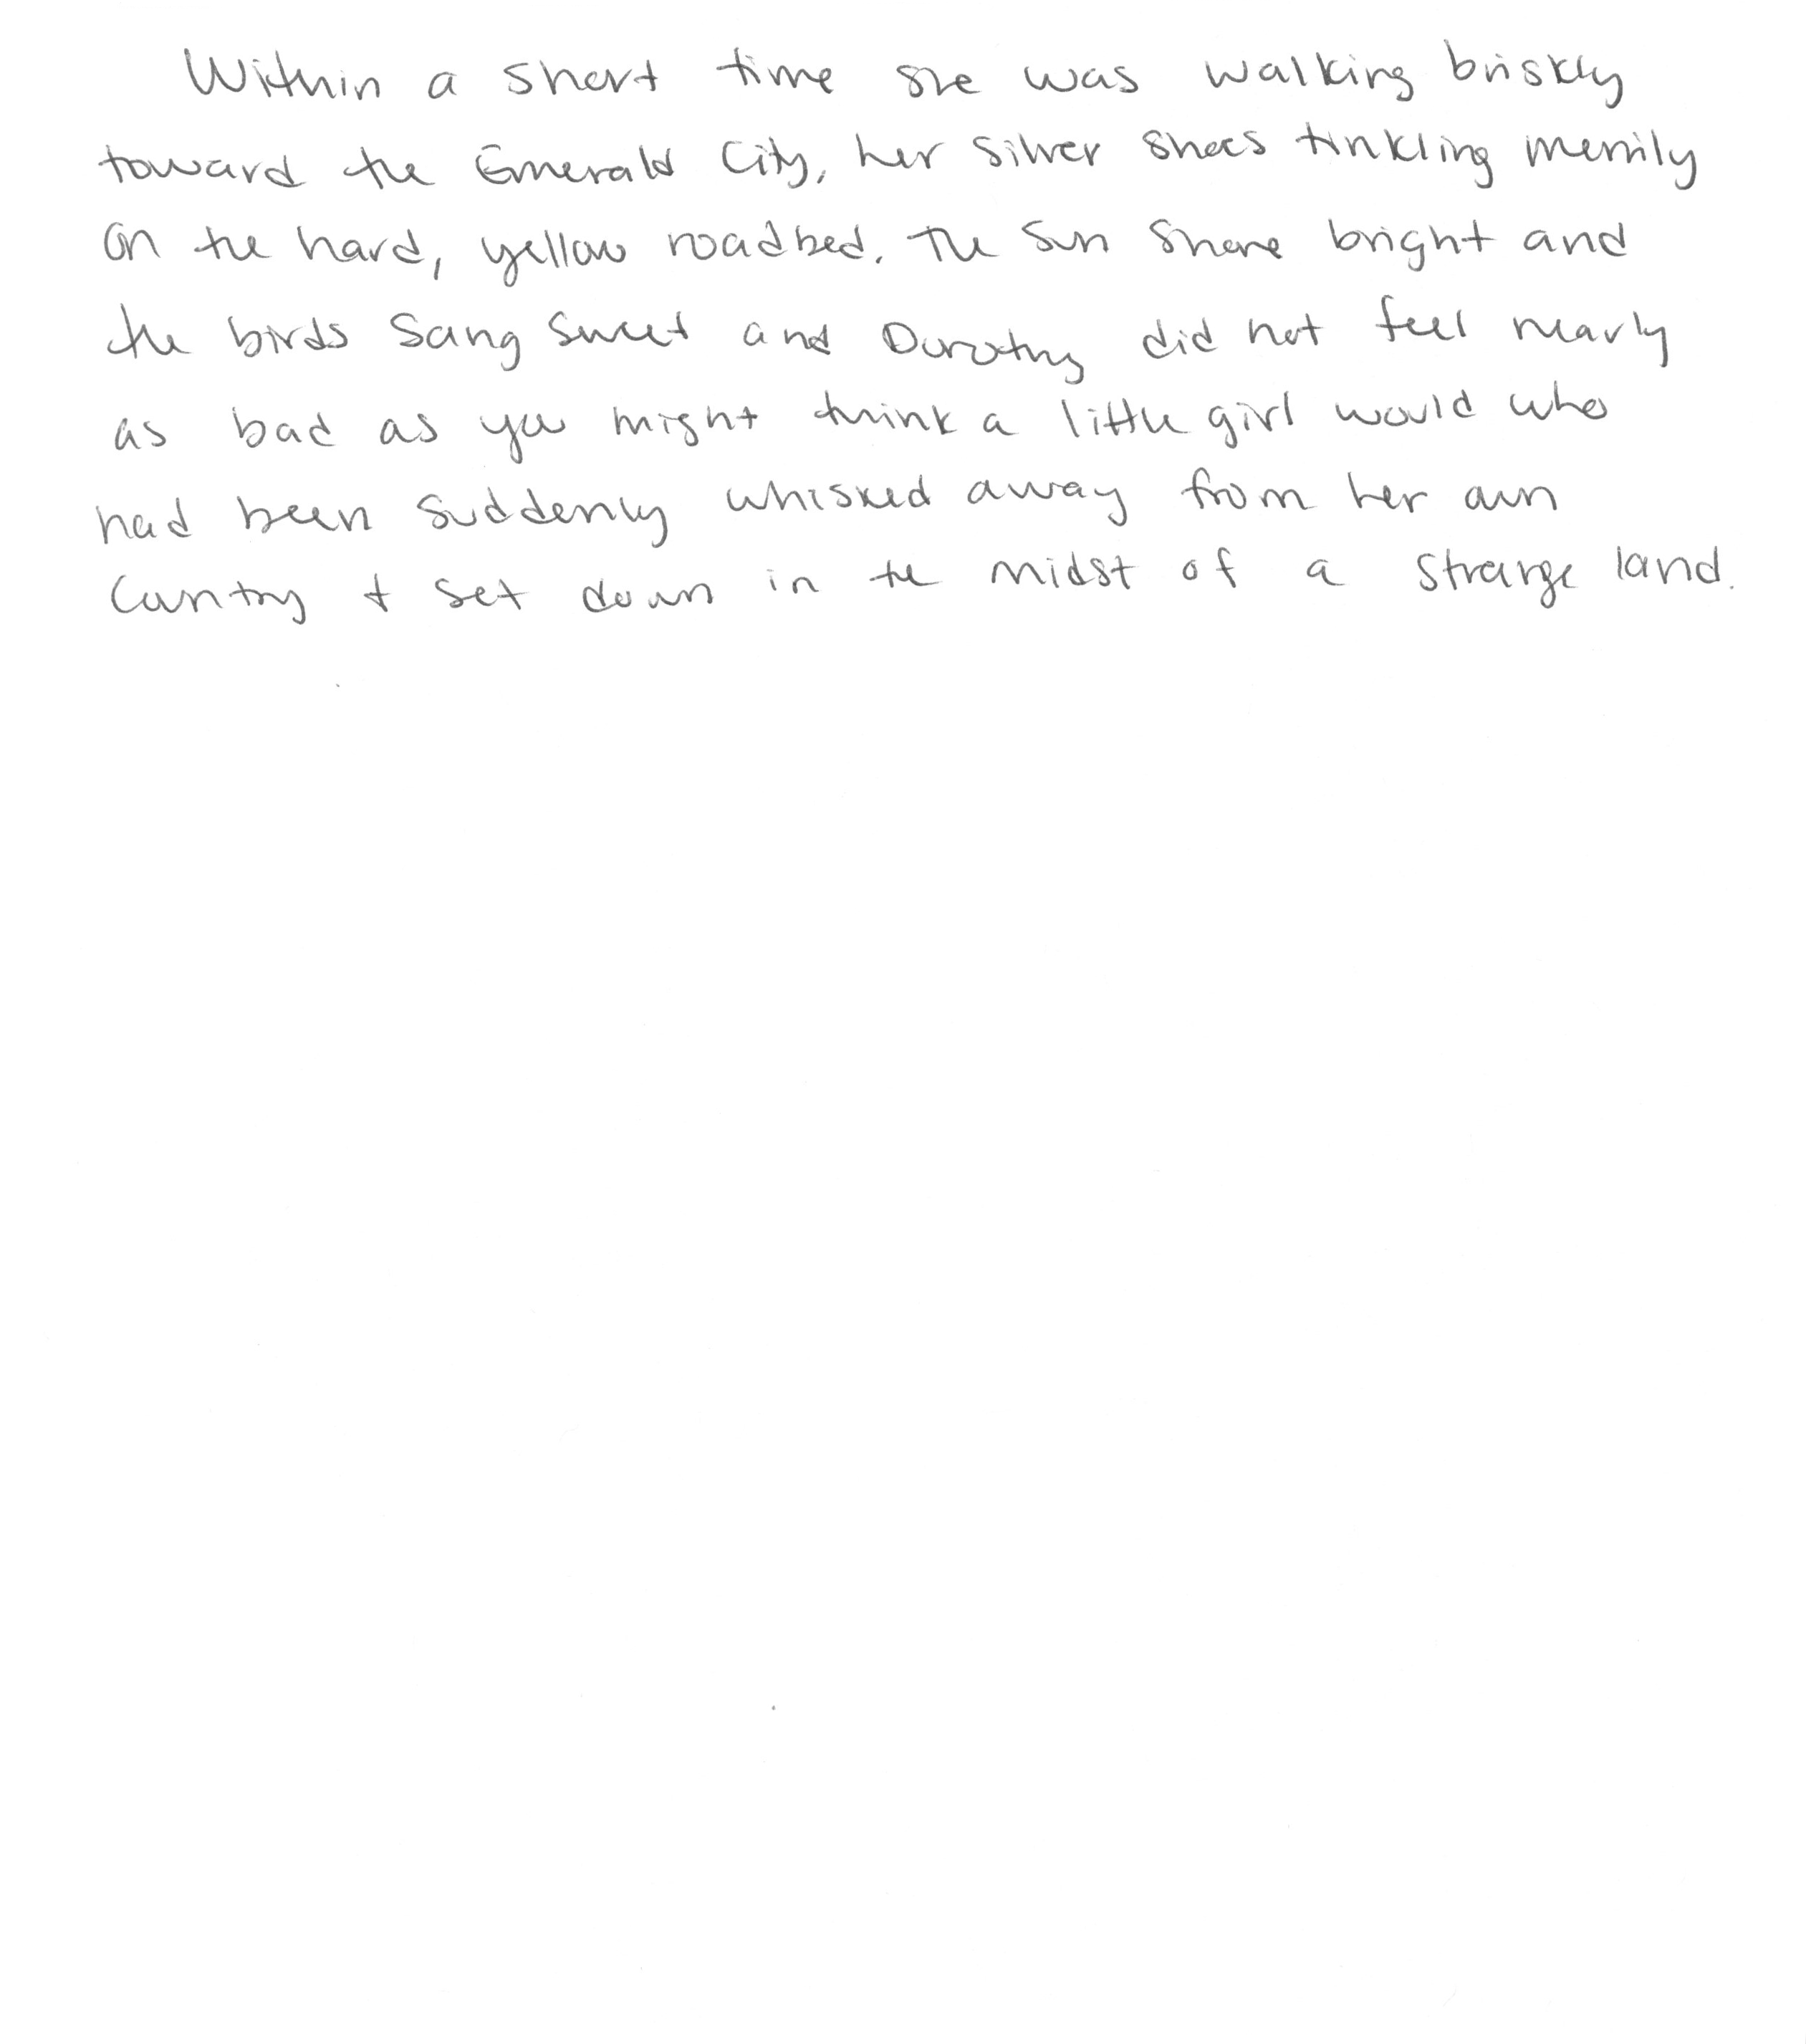 Within a short time she was walking briskly
toward the Emerald City, her Silver Shoes tinkling merrily
on the hard, yellow roadbed. The sun shone bright and
the birds sang sweet and Dorothy did not feel nearly
as bad as you might think a little girl would who
had been suddenly whisked away from her own
country & set down in the midst of a strange land.